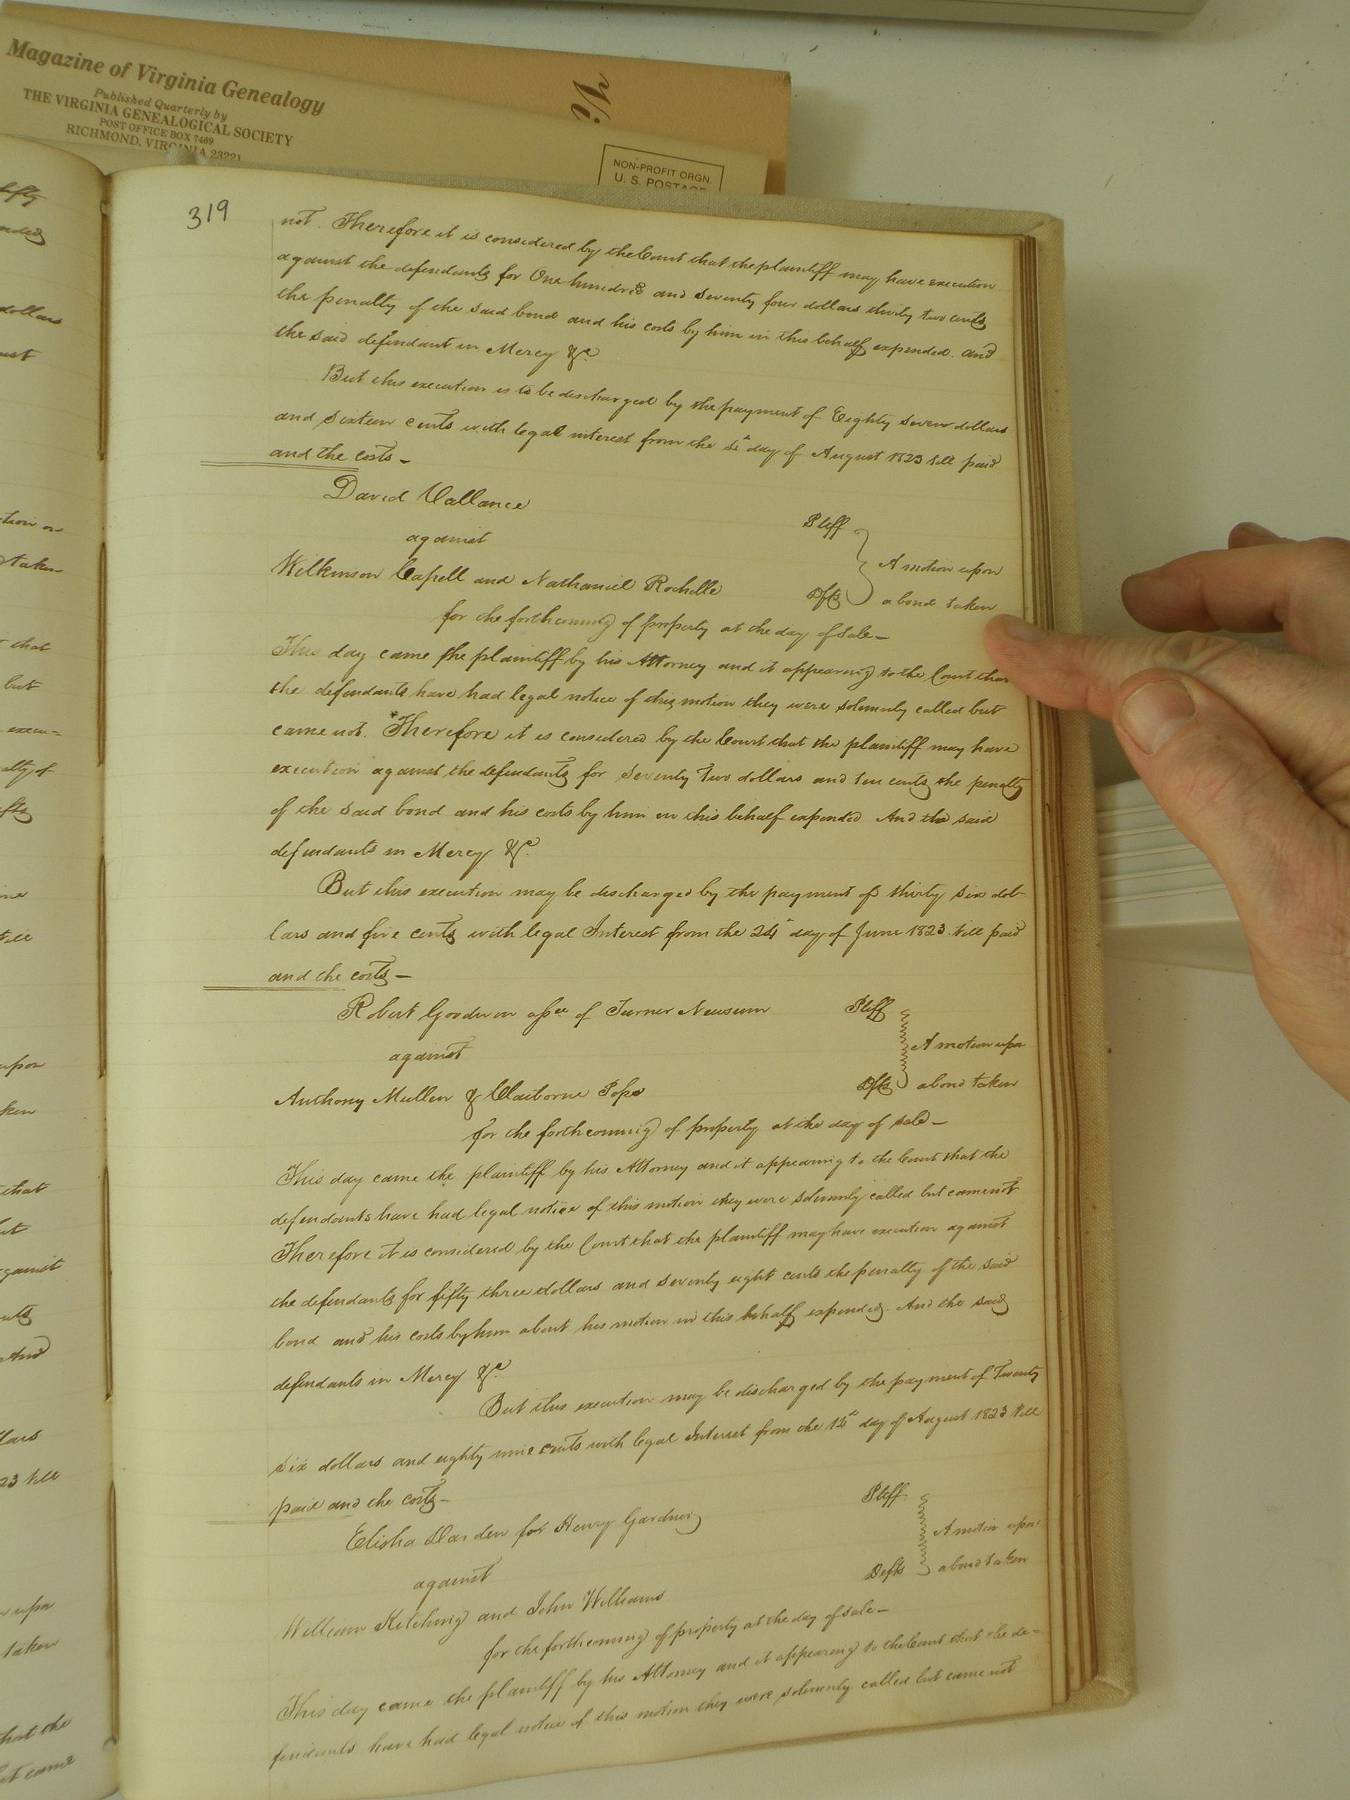 Magazine of Virginia Genealogy
Published Quarterly by
THE VIRGINIA GENEALOGICAL SOCIETY
POST OFFICE BOX 7469
RICHMOND, VIRGINIA 23221
Vi
NON-PROFIT ORGN.
U. S. POSTAGE
319
not. Therefore it is considered by the Court that the plaintiff may have execution
against the defendants for One hundred and seventy four dollars thirty two cents
the penalty of the said bond and his costs by him in this behalf expended. and
the said defendant in Mercy &c
But this execution is to be discharged by the payment of Eighty seven dollars
and sixteen cents with legal interest from the day of August 1823 till paid
and the costs —
David Vallance Pltff
against
A motion upon
Wilkinson Capell and Nathaniel Rochelle Dfts a bond taken
for the forthcoming of property at the day of sale —
This day came the plaintiff by his Attorney and it appearing to the Court that
the defendants have had legal notice of this motion they were solemnly called but
came not. Therefore it is considered by the Court that the plaintiff may have
execution against the defendants for seventy two dollars and ten cents the penalty
of the said bond and his costs by him in this behalf expended And the said
defendants in Mercy &c
But this execution may be discharged by the payment of thirty six dol-
lars and five cents with legal Interest from the 24th day of June 1823 till paid
and the costs —
Robert Goodwin assee of Turner Newsum Pltff
against A motion upon
Anthony Mullen & Claiborne Pope Dfts a bond taken
for the forthcoming of property at the day of sale —
This day came the plaintiff by his Attorney and it appearing to the Court that the
defendants have had legal notice of this motion they were solemnly called but came not
Therefore it is considered by the Court that the plaintiff may have execution against
the defendants for fifty three dollars and seventy eight cents the penalty of the said
bond and his costs by him about his motion in this behalf expended. And the said
defendants in Mercy &c
But this execution may be discharged by the payment of Twenty
six dollars and eighty nine cents with legal Interest from the 14th day of August 1823 till
paid and the costs —
Elisha Darden for Henry Gardner Pltff
against A motion upon
William Kitching and John Williams Defts a bond taken
for the forthcoming of property at the day of sale —
This day came the plaintiff by his Attorney and it appearing to the Court that the de-
fendants have had legal notice of this motion they were solemnly called but came not